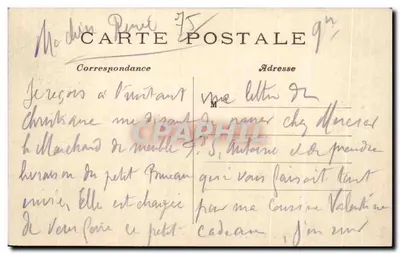 Ma chère
75
CARTE POSTALE
Correspondance
Adresse
Je reçois à l'instant une lettre de
Christiane me disant de passer chez Mercier
le Marchand de meuble F. S. Antoine et de prendre
livraison du petit Bureau qui vous faisait tant
envie. Elle est chargée par ma cousine Valentine
de vous faire ce petit cadeau. J'en suis
M
Cparama